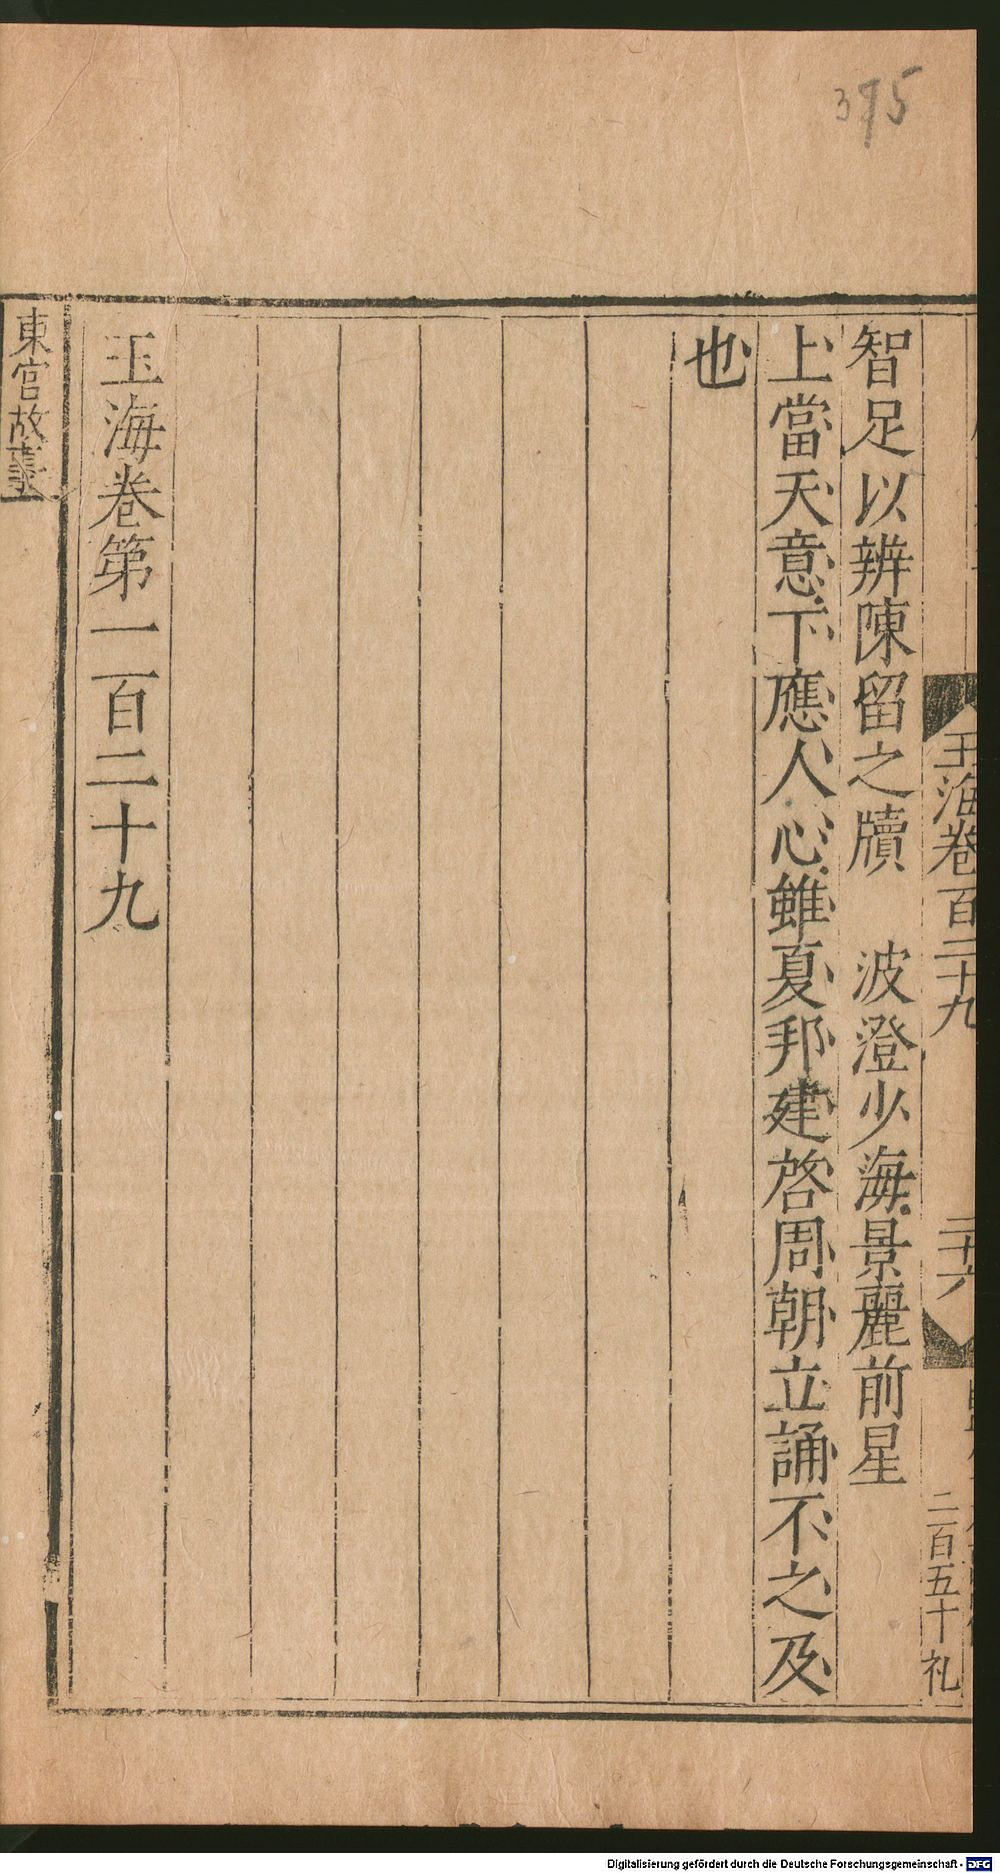 375
玉海卷百二十九
二十六
二百五十 礼
智足以辨陳留之牘　波澄少海景麗前星
上當天意下應人心雖夏邦建啓周朝立誦不之及
也
玉海卷第一百二十九
東宮故事
Digitalisierung gefördert durch die Deutsche Forschungsgemeinschaft - DFG